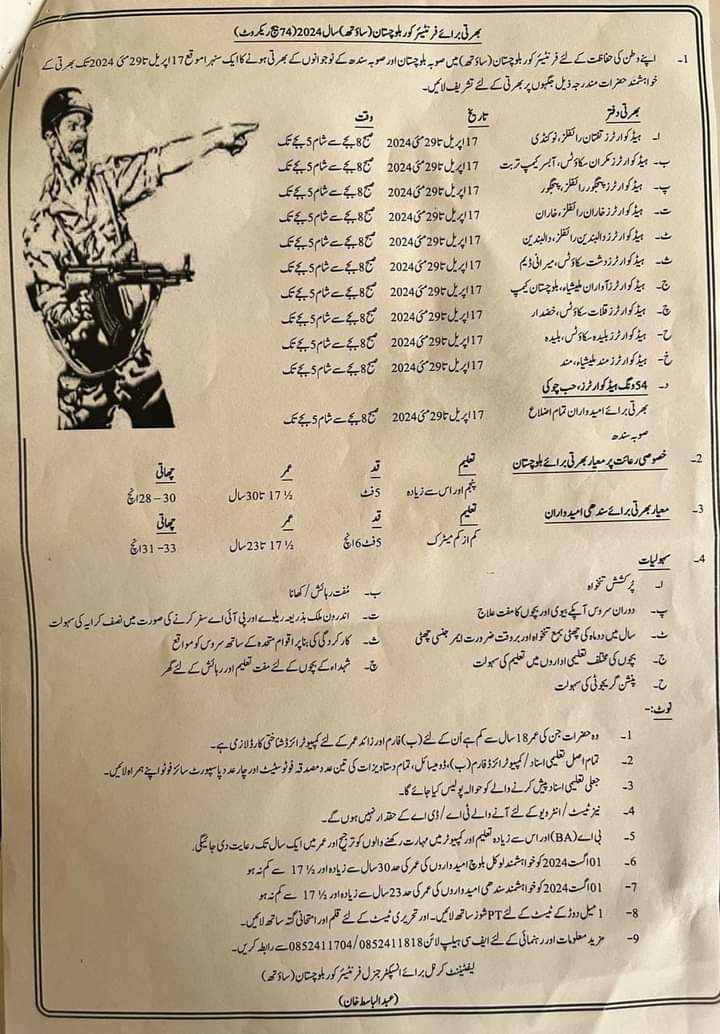 بھرتی برائے فرنٹیئر کور بلوچستان (ساؤتھ) سال 2024 (74 بیچ ریکروٹ)
1- اپنے وطن کی حفاظت کے لئے فرنٹیئر کور بلوچستان (ساؤتھ) میں صوبہ بلوچستان اور صوبہ سندھ کے نوجوانوں کے بھرتی ہونے کا ایک سنہرا موقع 17 اپریل تا 29 مئی 2024 تک بھرتی کے
خواہشمند حضرات مندرجہ ذیل جگہوں پر بھرتی کے لئے تشریف لائیں۔
بھرتی دفتر تاریخ وقت
ا۔ ہیڈ کوارٹرز تفتان رائفلز، نوکنڈی 17 اپریل تا 29 مئی 2024 صبح 8 بجے سے شام 5 بجے تک
ب۔ ہیڈ کوارٹرز مکران سکاؤٹس، آبسر کیمپ تربت 17 اپریل تا 29 مئی 2024 صبح 8 بجے سے شام 5 بجے تک
پ۔ ہیڈ کوارٹرز پنجگور رائفلز، پنجگور 17 اپریل تا 29 مئی 2024 صبح 8 بجے سے شام 5 بجے تک
ت۔ ہیڈ کوارٹرز خاران رائفلز، خاران 17 اپریل تا 29 مئی 2024 صبح 8 بجے سے شام 5 بجے تک
ٹ۔ ہیڈ کوارٹرز دالبندین رائفلز، دالبندین 17 اپریل تا 29 مئی 2024 صبح 8 بجے سے شام 5 بجے تک
ث۔ ہیڈ کوارٹرز دشت سکاؤٹس، میرانی ڈیم 17 اپریل تا 29 مئی 2024 صبح 8 بجے سے شام 5 بجے تک
ج۔ ہیڈ کوارٹرز آواران ملیشیاء، بلوچستان کیمپ 17 اپریل تا 29 مئی 2024 صبح 8 بجے سے شام 5 بجے تک
چ۔ ہیڈ کوارٹرز قلات سکاؤٹس، خضدار 17 اپریل تا 29 مئی 2024 صبح 8 بجے سے شام 5 بجے تک
ح۔ ہیڈ کوارٹرز بلیدہ سکاؤٹس، بلیدہ 17 اپریل تا 29 مئی 2024 صبح 8 بجے سے شام 5 بجے تک
خ۔ ہیڈ کوارٹرز مند ملیشیاء، مند 17 اپریل تا 29 مئی 2024 صبح 8 بجے سے شام 5 بجے تک
د۔ 54 ونگ ہیڈ کوارٹرز، حب چوکی
بھرتی برائے امیدواران تمام اضلاع 17 اپریل تا 29 مئی 2024 صبح 8 بجے سے شام 5 بجے تک
صوبہ سندھ
2- خصوصی رعائت پر معیار بھرتی برائے بلوچستان
تعلیم قد عمر چھاتی
پنجم اور اس سے زیادہ 5 فٹ 17 ½ تا 30 سال 28 – 30 انچ
3- معیار بھرتی برائے سندھی امیدواران
تعلیم قد عمر چھاتی
کم از کم میٹرک 5 فٹ 6 انچ 17 ½ تا 23 سال 31 – 33 انچ
4- سہولیات
ا۔ پُرکشش تنخواہ ب۔ مُفت رہائش / کھانا
پ۔ دوران سروس آپکے بیوی اور بچوں کا مفت علاج ت۔ اندرون ملک بذریعہ ریلوے اور پی آئی اے سفر کرنے کی صورت میں نصف کرایہ کی سہولت
ٹ۔ سال میں دو ماہ کی چھٹی بمع تنخواہ اور بوقت ضرورت ایمر جنسی چھٹی ث۔ کارکردگی کی بنا پر اقوام متحدہ کے ساتھ سروس کو مواقع
ج۔ بچوں کی مختلف تعلیمی اداروں میں تعلیم کی سہولت چ۔ شہداء کے بچوں کے لئے مفت تعلیم اور رہائش کے لئے گھر
ح۔ پنشن گریجوٹی کی سہولت
نوٹ:-
1- وہ حضرات جن کی عمر 18 سال سے کم ہے اُن کے لئے (ب) فارم اور زائد عمر کے لئے کمپیوٹرائزڈ شناختی کارڈ لازمی ہے۔
2- تمام اصل تعلیمی اسناد / کمپیوٹرائزڈ فارم (ب)، ڈومیسائل، تمام دستاویزات کی تین عدد مصدقہ فوٹو سٹیٹ اور چار عدد پاسپورٹ سائز فوٹو اپنے ہمراہ لائیں۔
3- جعلی تعلیمی اسناد پیش کرنے والے کو حوالہ پولیس کیا جائے گا۔
4- نیز ٹیسٹ / انٹرویو کے لئے آنے والے ٹی اے / ڈی اے کے حقدار نہیں ہوں گے۔
5- بی اے (BA) اور اس سے زیادہ تعلیم اور کمپیوٹر میں مہارت رکھنے والوں کو ترجیح اور عمر میں ایک سال تک رعایت دی جائیگی۔
6- 01 اگست 2024 کو خواہشمند لوکل بلوچ امیدواروں کی عمر کی حد 30 سال سے زیادہ اور ½ 17 سے کم نہ ہو
7- 01 اگست 2024 کو خواہشمند سندھی امیدواروں کی عمر کی حد 23 سال سے زیادہ اور ½ 17 سے کم نہ ہو
8- 1 میل دوڑ کے ٹیسٹ کے لئے PT شوز ساتھ لائیں۔ اور تحریری ٹیسٹ کے لئے قلم اور امتحانی گتہ ساتھ لائیں۔
9- مزید معلومات اور رہنمائی کے لئے ایف سی ہیلپ لائن 0852411704/0852411818 سے رابطہ کریں۔
لیفٹیننٹ کرنل برائے انسپکٹر جنرل فرنٹیئر کور بلوچستان (ساؤتھ)
(عبدالباسط خان)